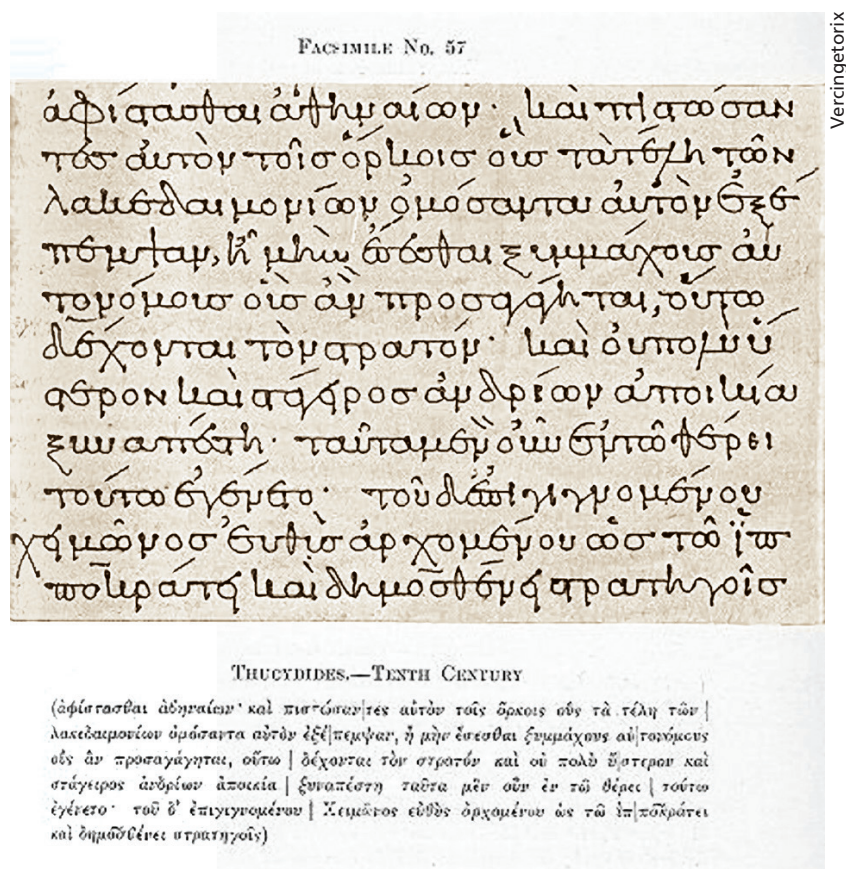 Vercingetorix
FACSIMILE No. 57
ἀφίστασθαι ἀθηναίων· καὶ πιστώσαν
τες αὐτὸν τοῖς ὅρκοις οὓς τὰ τέλη τῶν
λακεδαιμονίων ὀμόσαντα αὐτὸν ἐξέ
πεμψαν, ἦ μὴν ἔσεσθαι ξυμμάχους αὐ
τονόμους οὓς ἂν προσαγάγηται, οὕτω
δέχονται τὸν στρατόν· καὶ οὐ πολὺ ὕ
στερον καὶ στάγειρος ἀνδρίων ἀποικία
ξυναπέστη· ταῦτα μὲν οὖν ἐν τῶ θέρει
τούτω ἐγένετο· τοῦ δ' ἐπιγιγνομένου
χειμῶνος εὐθὺς ἀρχομένου ὡς τῶ ἱπ
ποκράτει καὶ δημοσθένει στρατηγοῖς
THUCYDIDES.—TENTH CENTURY
(ἀφίστασθαι ἀθηναίων· καὶ πιστώσαν|τες αὐτὸν τοῖς ὅρκοις οὓς τὰ τέλη τῶν |
λακεδαιμονίων ὀμόσαντα αὐτὸν ἐξέ|πεμψαν, ἦ μὴν ἔσεσθαι ξυμμάχους αὐ|τονόμους
οὓς ἂν προσαγάγηται, οὕτω | δέχονται τὸν στρατόν καὶ οὐ πολὺ ὕ|στερον καὶ
στάγειρος ἀνδρίων ἀποικία | ξυναπέστη ταῦτα μὲν οὖν ἐν τῶ θέρει | τούτω
ἐγένετο· τοῦ δ' ἐπιγιγνομένου | Χειμῶνος εὐθὺς ἀρχομένου ὡς τῶ ἱπ|ποκράτει
καὶ δημοσθένει στρατηγοῖς)